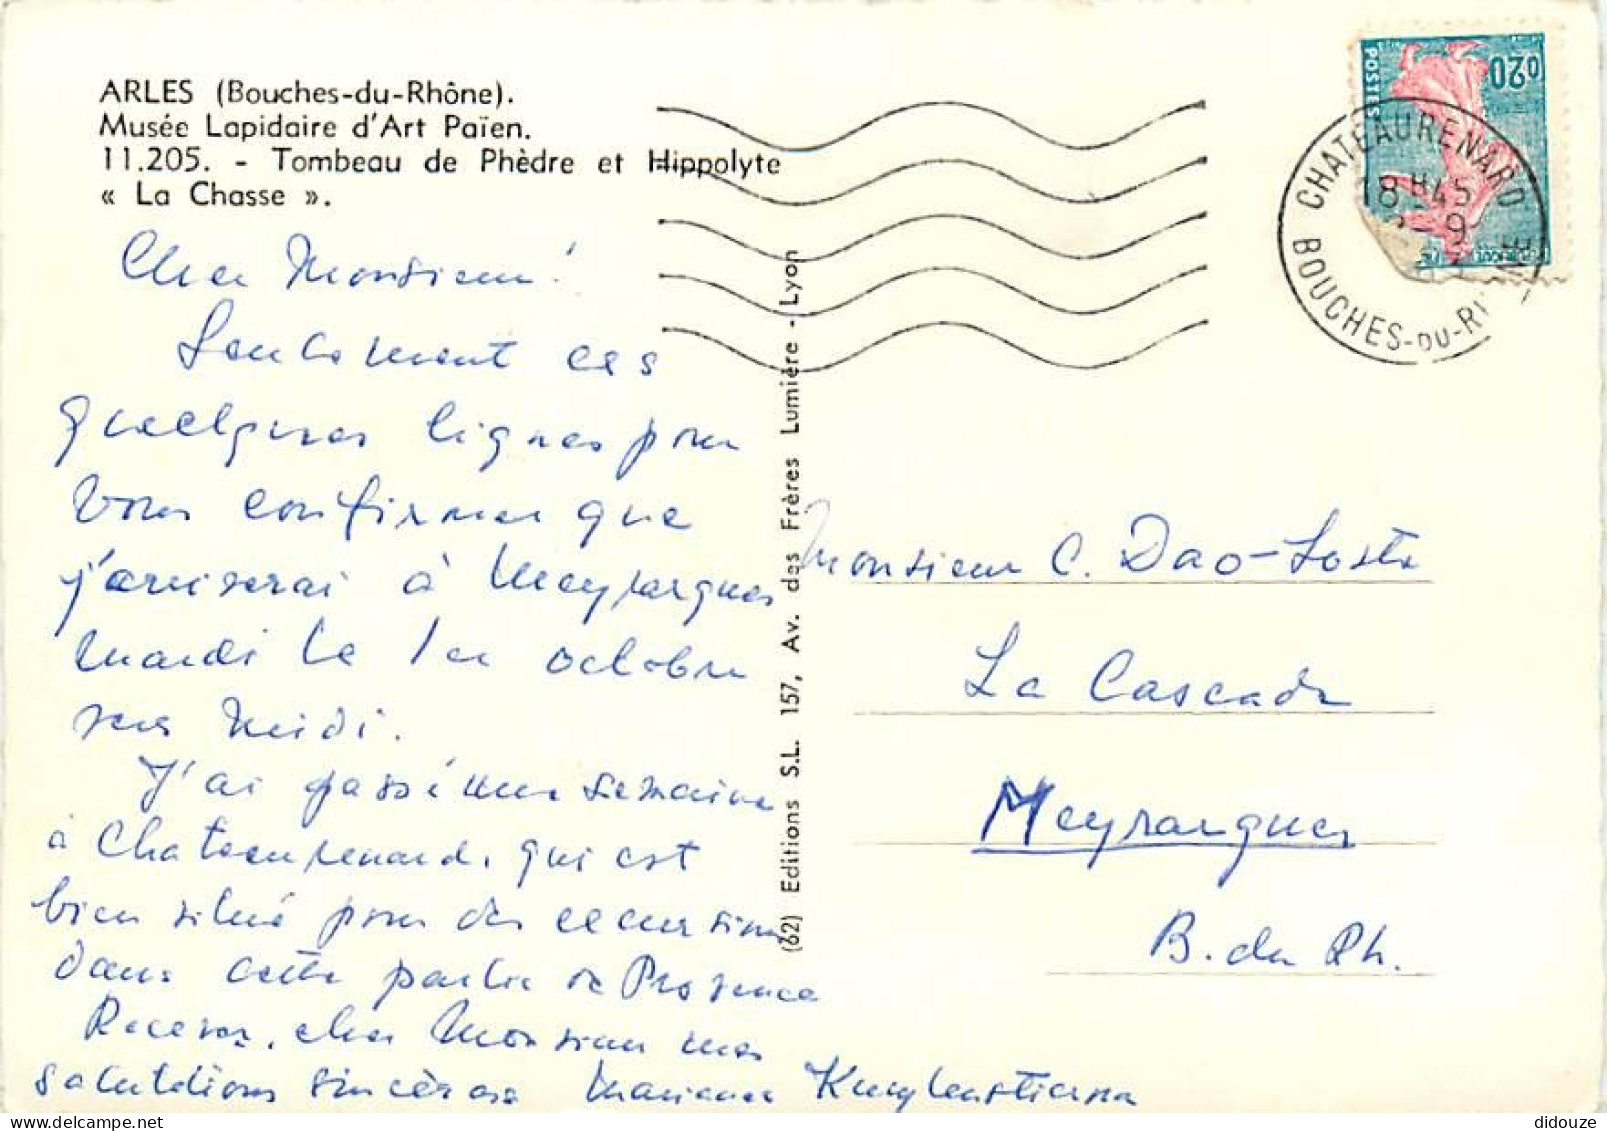 ARLES (Bouches-du-Rhône).
Musée Lapidaire d'Art Païen.
11.205. - Tombeau de Phèdre et Hippolyte
« La Chasse ».
Cher Monsieur!
Seulement ces
quelques lignes pour
vous confirmer que
j'arriserai à Meyrargues
mardi le 1er octobre
vers midi.
J'ai passé une semaine
à Chateaurenard, qui est
bien situé pour des excursions
dans cette partie de Provence
Recevez, cher Monsieur mes
salutations sincères Marianne
(62) Editions S.L. 157, Av. des Frères Lumière - Lyon
POSTES
0,20
CHATEAURENARD
18H45
-9
BOUCHES-DU-RHÔNE
Monsieur C. Dao-Losta
La Cascade
Meyrargues
B. du Rh.
didouze